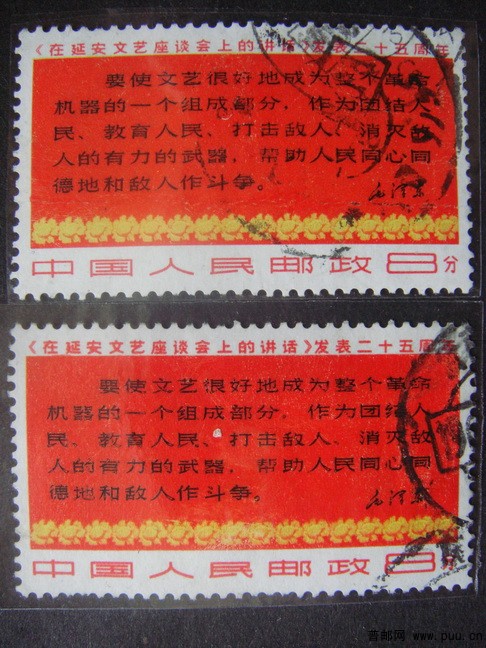 《在延安文艺座谈会上的讲话》发表二十五周年
要使文艺很好地成为整个革命
机器的一个组成部分，作为团结人
民、教育人民、打击敌人、消灭敌
人的有力的武器，帮助人民同心同
德地和敌人作斗争。
毛泽东
中国人民邮政8分
《在延安文艺座谈会上的讲话》发表二十五周年
要使文艺很好地成为整个革命
机器的一个组成部分，作为团结人
民、教育人民、打击敌人、消灭敌
人的有力的武器，帮助人民同心同
德地和敌人作斗争。
毛泽东
中国人民邮政8分
普邮网 www.puu.cn